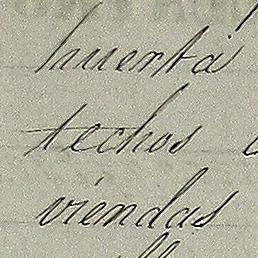 huerta
techos
viendas